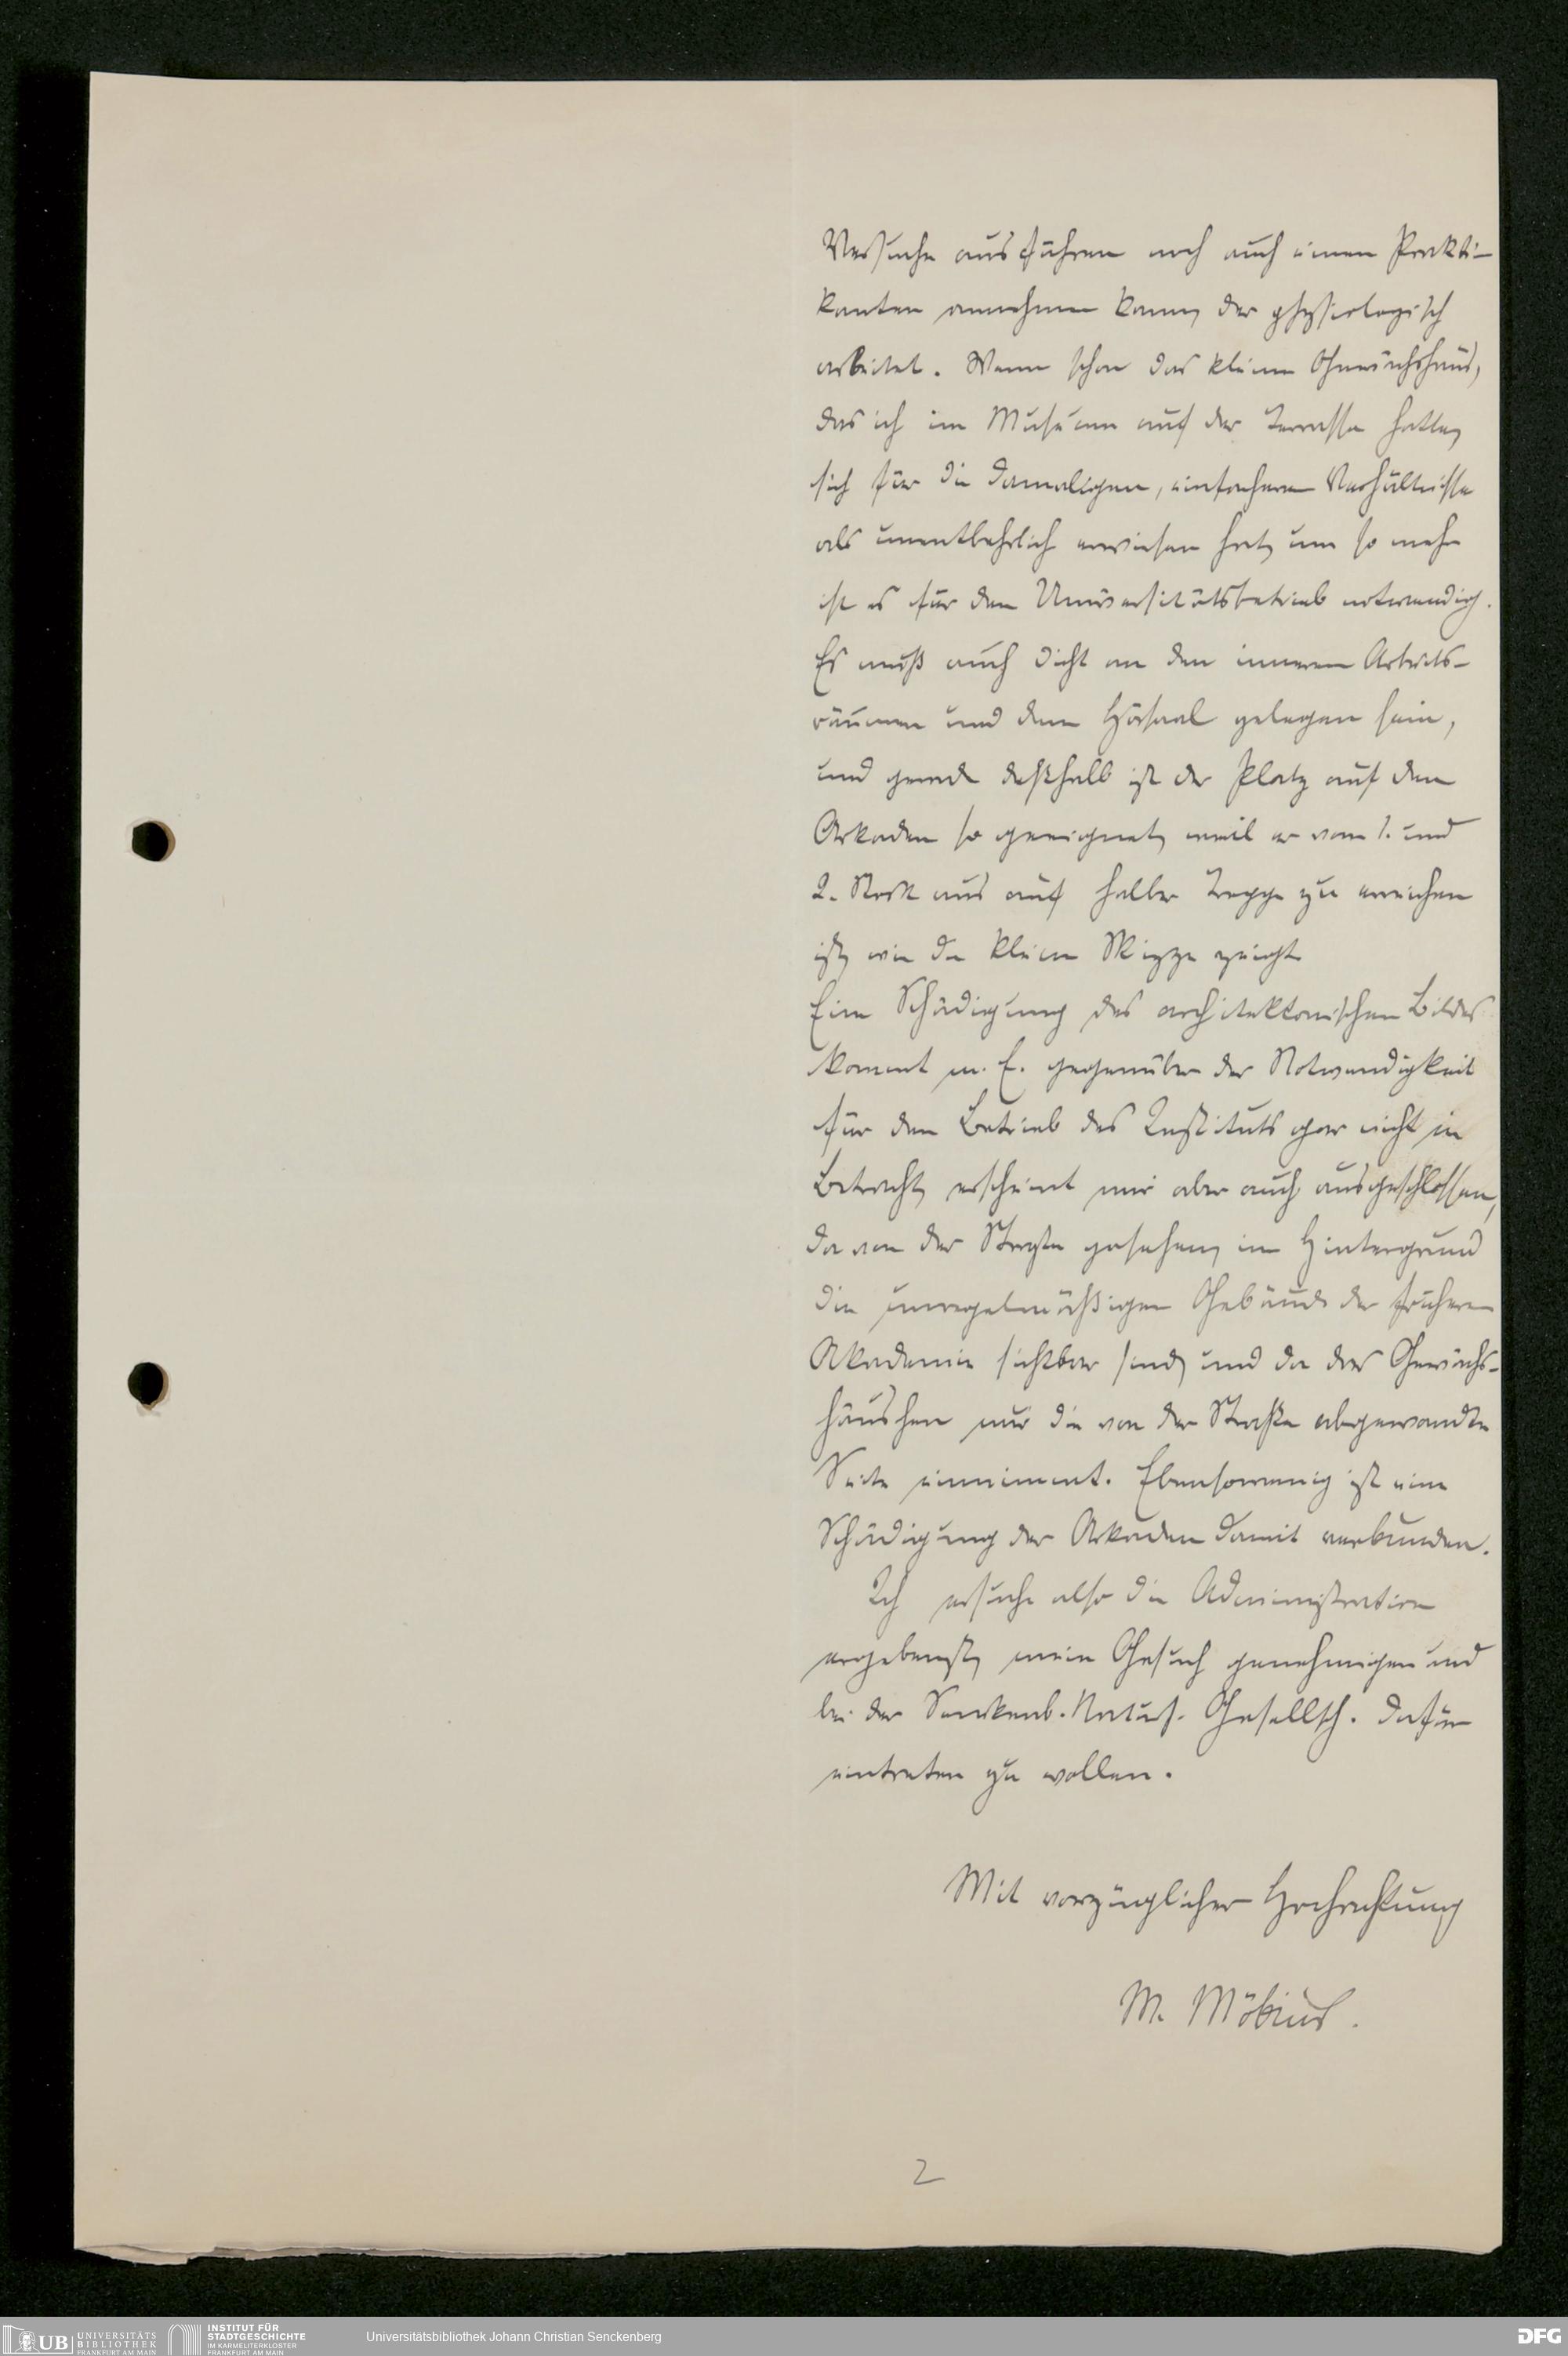 Versuche ausführen noch auch einen Prakti-
kanten annehmen kann, der physiologisch
arbeitet. Wenn schon das kleine Gewächshaus,
das ich im Museum auf der Terrasse hatte,
sich für die damaligen, einfacheren Verhältnisse
als unentbehrlich erwiesen hat, um so mehr
ist es für den Universitätsbetrieb notwendig.
Es muß auch dicht an den inneren Arbeits-
räumen und dem Hörsaal gelegen sein,
und gerade deßhalb ist der Platz auf den
Arkaden so geeignet, weil er vom 1. und
2. Stock aus auf halber Treppe zu erreichen
ist, wie die kleine Skizze zeigt.
Eine Schädigung des architektonischen Bildes
kommt m. E. gegenüber der Notwendigkeit
für den Betrieb des Instituts gar nicht in
Betracht, erscheint mir aber auch ausgeschlossen,
da von der Straße gesehen, im Hintergrund
die unregelmäßigen Gebäude der früheren
Akademie sichtbar sind, und da das Gewächs-
häuschen nur die von der Straße abgewandte
Seite einnimmt. Ebensowenig ist eine
Schädigung der Arkaden damit verbunden.
Ich ersuche also die Administration
ergebenst, mein Gesuch genehmigen und
bei der Senckenb. Naturf. Gesellsch. dafür
eintreten zu wollen.
Mit vorzüglicher Hochachtung
M. Möbius.
2
UB UNIVERSITÄTS
BIBLIOTHEK
FRANKFURT AM MAIN
INSTITUT FÜR
STADTGESCHICHTE
IM KARMELITERKLOSTER
FRANKFURT AM MAIN
Universitätsbibliothek Johann Christian Senckenberg
DFG